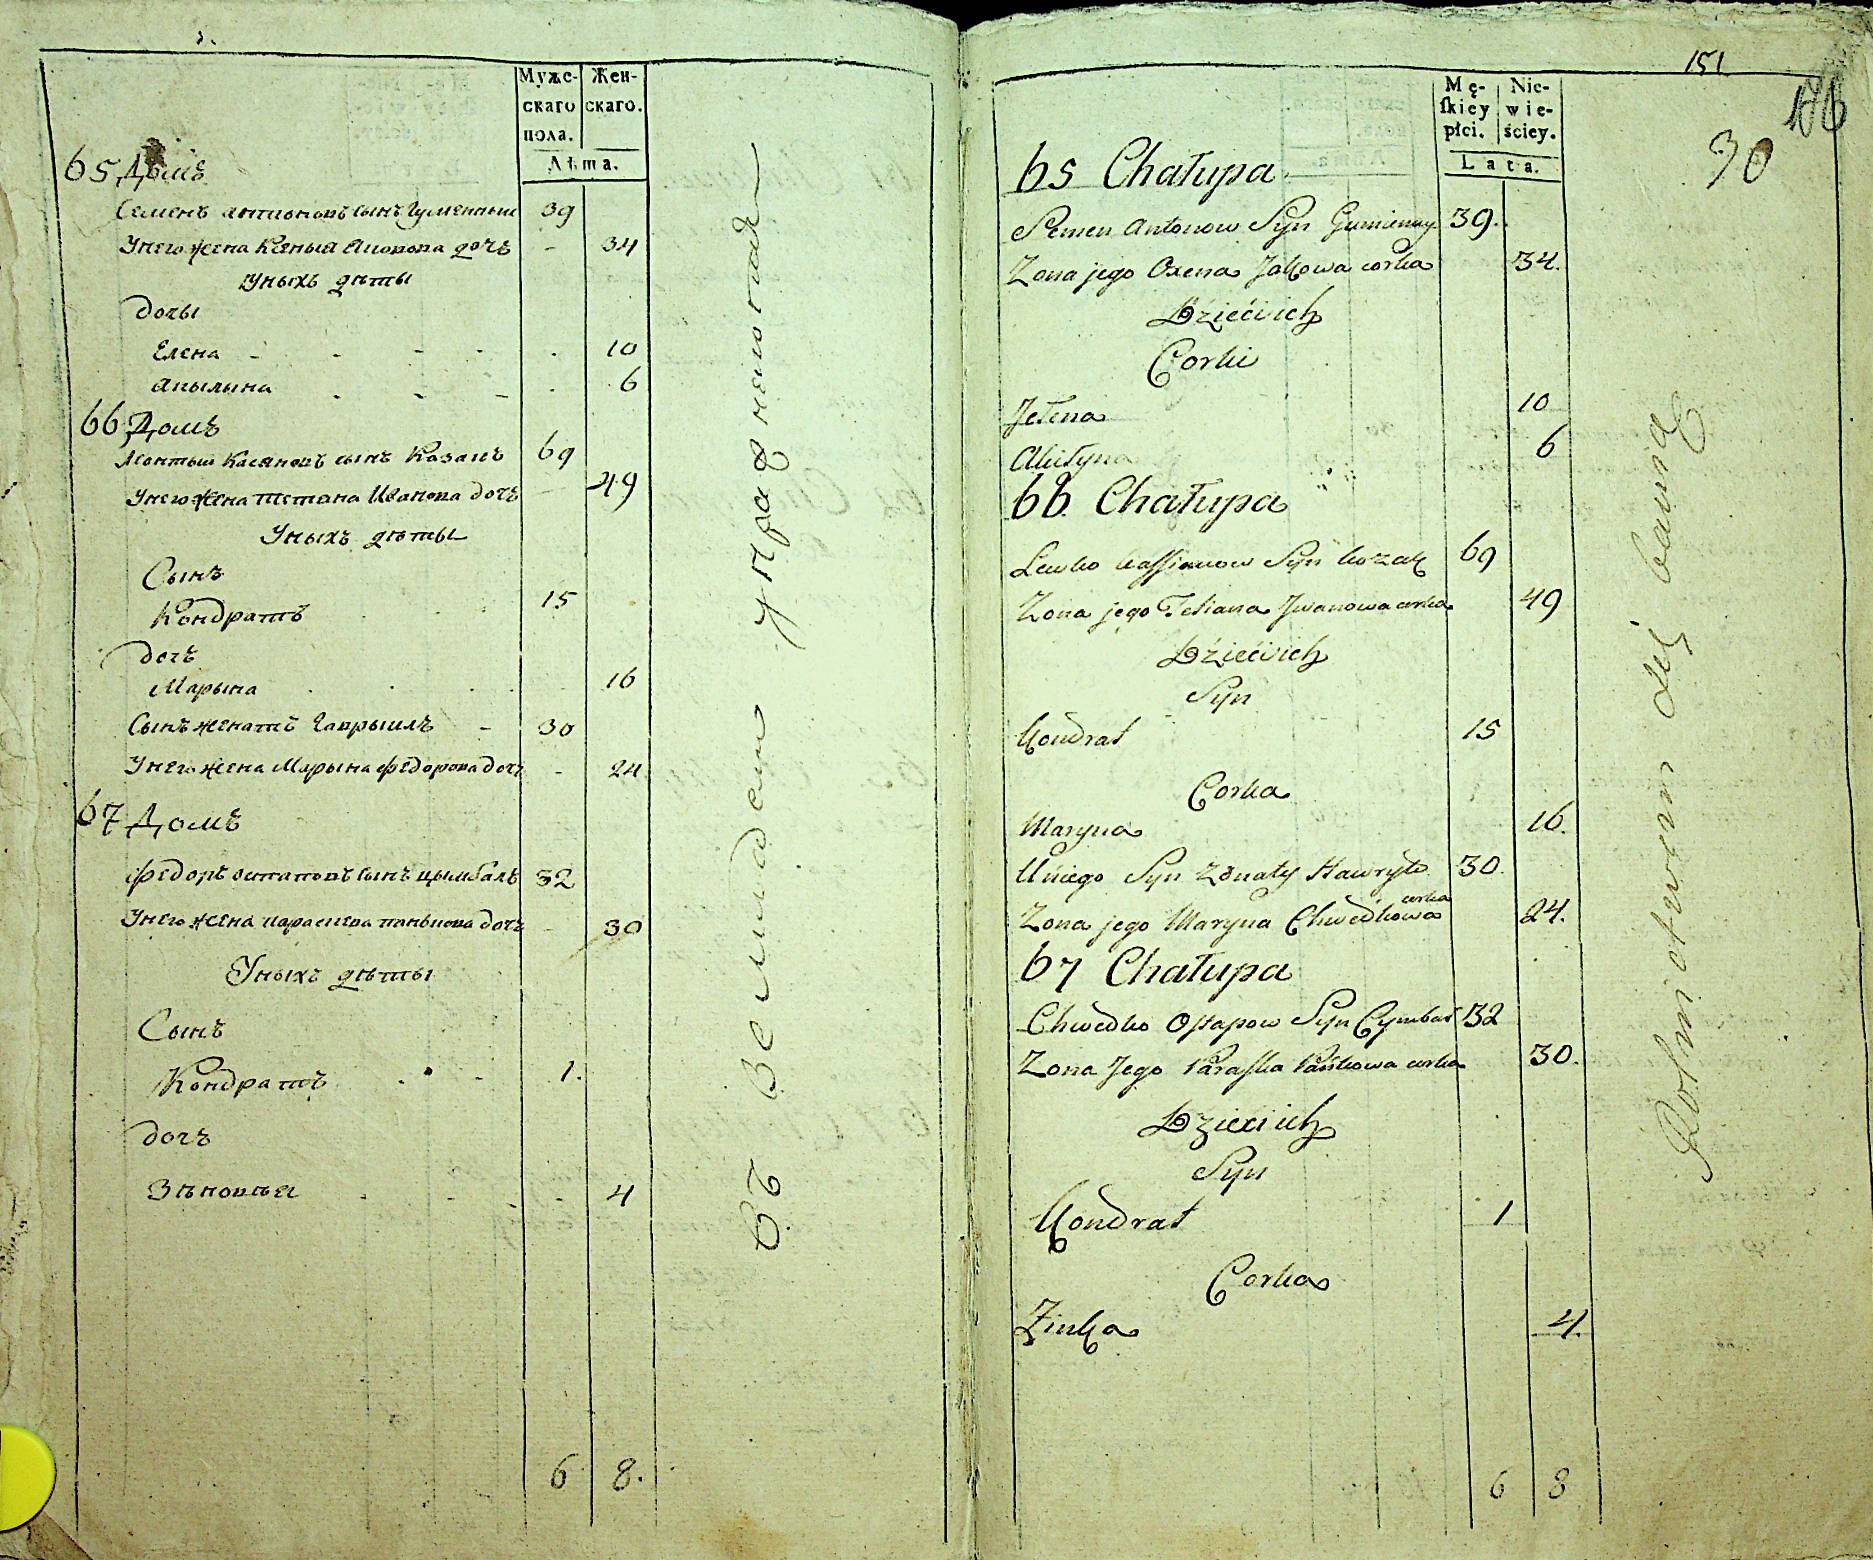 Муже-
скаго
пола.
Жен-
скаго.
Лѣта.
65 Домъ
Семенъ Антоновъ сынъ Гуменный 39
У него жена Ксенья Яковова дочъ - 34
У ныхъ дѣты
дочы
Елена - 10
Акылына 6
66 Домъ
Леонтый Касяновъ сынъ Козакъ 69
У него жена Тетяна Иванова дочъ - 49
У ныхъ дѣты
Сынъ
Кондратъ 15
дочъ
Марына 16
Сынъ женатъ Гаврышлъ - 30
У него жена Марына Федорова дочъ - 24
67 Домъ
Федоръ Остаповъ сынъ Цымбалъ 32
У него жена Параскева Панькова дочъ - 30
У ныхъ дѣты
Сынъ
Кондратъ 1.
дочъ
Зѣновѣя - 4
6 8.
Въ земледелии упражняются
151
176
30
Mę-
skiey
płci.
Nie-
wie-
ściey.
Lata.
65 Chałupa
Semen Antonow Syn Gumienny 39.
Zona jego Oxena Jakowa corka 34.
Dzieci ich
Corki
Jełena 10
Akiłyna 6
66 Chałupa
Lewko Kassianow Syn Kozak 69
Zona jego Tetiana Iwanowa corka 49
Dzieci ich
Syn
Kondrat 15
Corka
Maryna 16.
U niego Syn Zonaty Hawryło 30.
Zona jego Maryna Chwedkowa corka 24.
67 Chałupa
Chwedko Ostapow Syn Cymbał 32
Zona Jego Paraska Pańkowa corka 30.
Dzieci ich
Syn
Kondrat 1
Corka
Zinka 4.
6 8
Rolnictwem się bawią